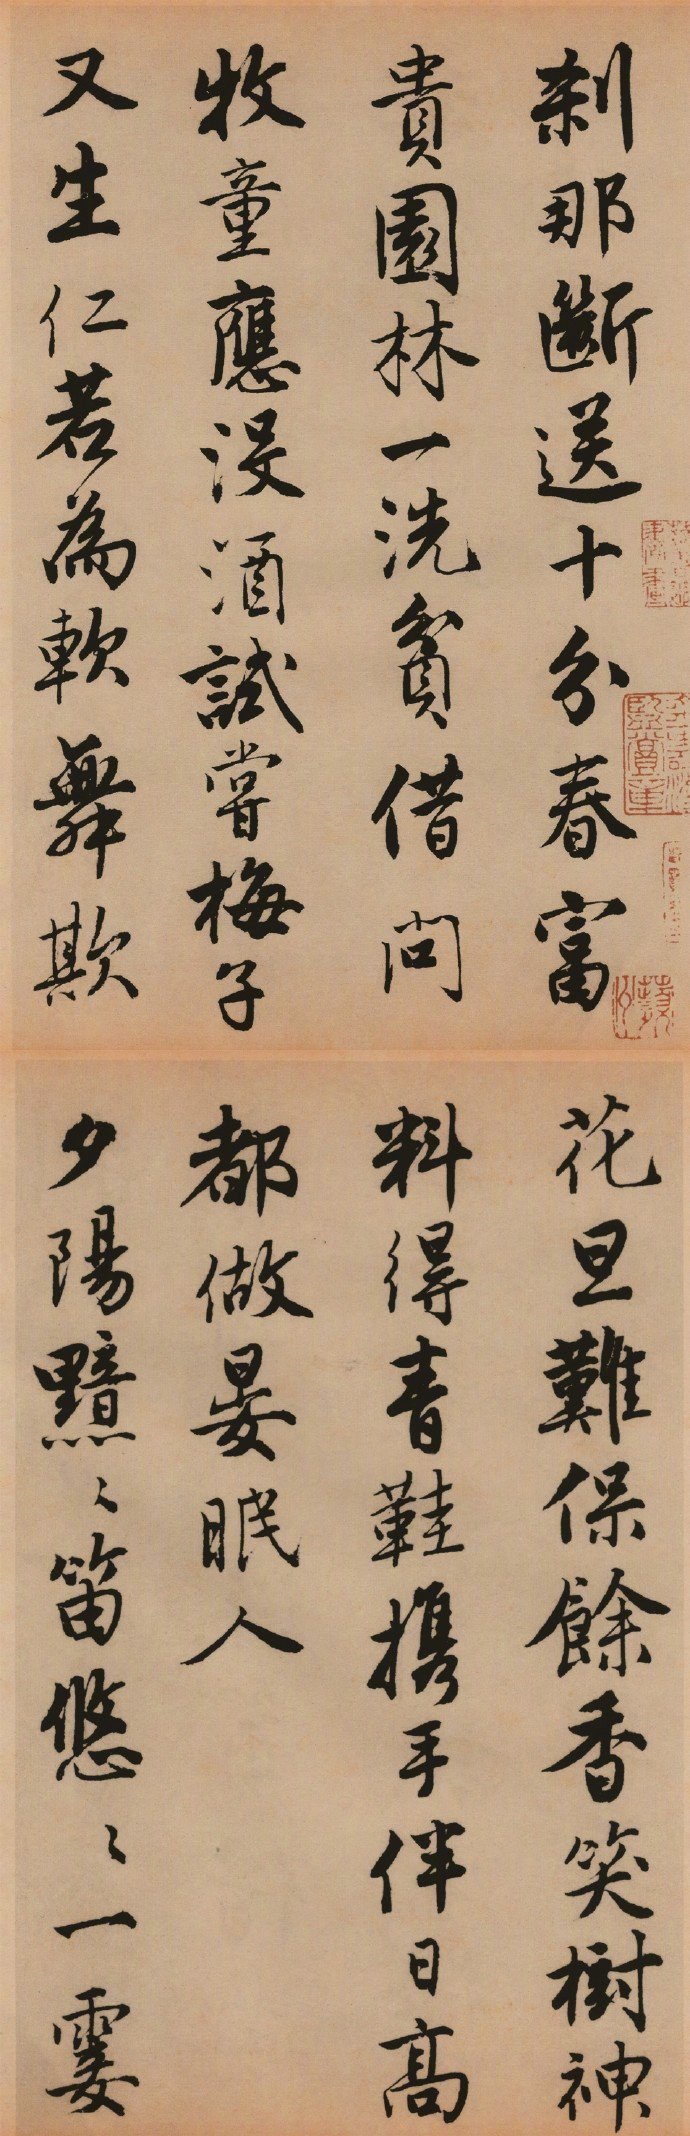 刹那斷送十分春富
貴園林一洗貧借問
牧童應没酒試嘗梅子
又生仁若為軟舞欺
花旦難保餘香笑樹神
料得青鞋携手伴日高
都做晏眠人
夕陽黯〻笛悠〻一霎